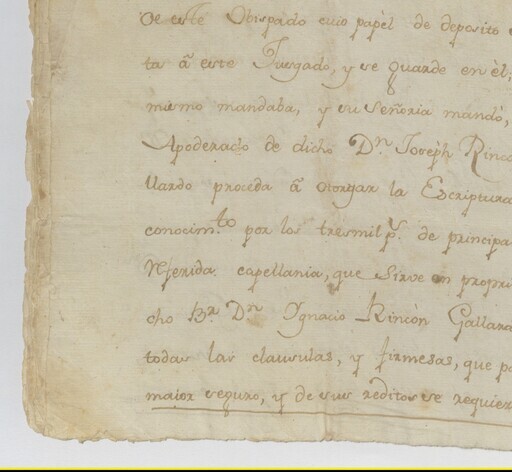 de este Obispado cuio papèl de deposito
ta â este Jusgado, y se guarde en èl,
mismo mandaba, y su Señoria mandó,
Apoderado de dicho Dn. Joseph Rinco
llardo proceda â otorgar la Escriptura
conocim.to por los tresmil ps. de principa
Rferida capellania, que sirve en propri
cho Br. Dn Ygnacio Rincòn Gallara
todas las clausulas, y firmesas, que pa
maior seguro, y de sus reditos se requier